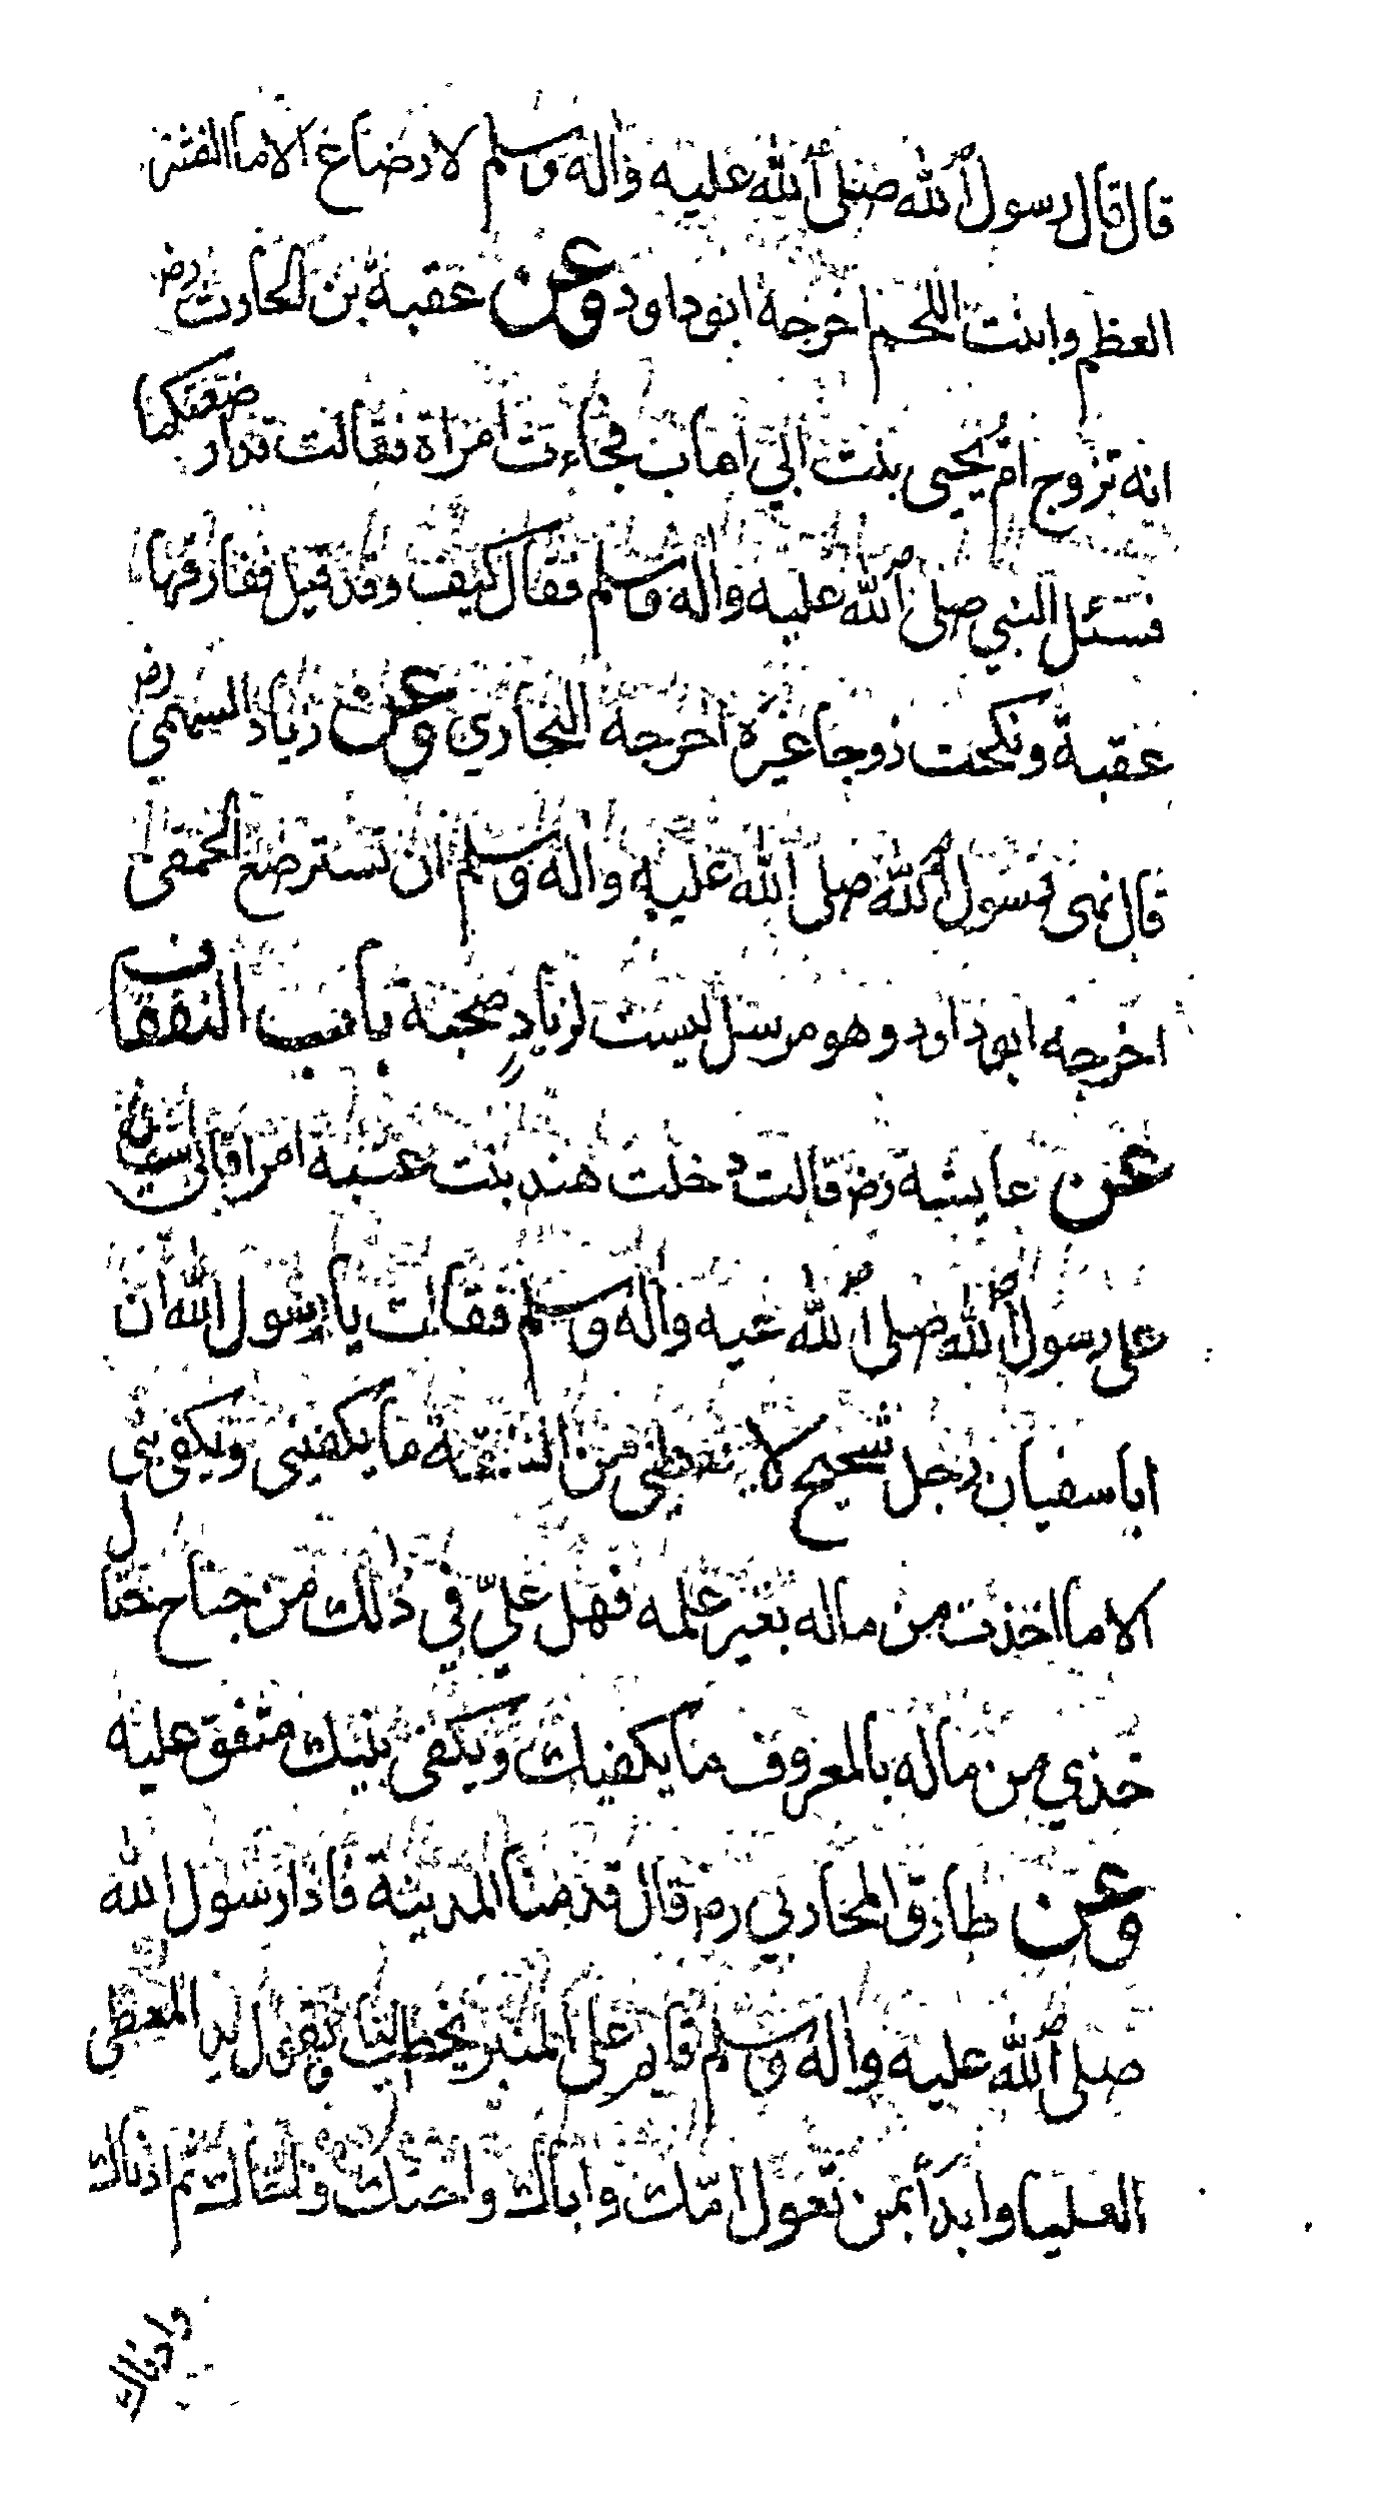 قال قال رسول الله صلى الله عليه واله وسلم لا رضاع الا ما انشز
العظم وابنت اللحم اخرجه ابوداود وعن عقبة بن الحارث رض
انه تزوج ام يحيى بنت ابي اهاب فجاءت امراة فقالت قد ارضعتكما
فسئل النبي صلى الله عليه واله وسلم فقال كيف وقد قيل ففارقها
عقبة ونكحت زوجا غيره اخرجه البخاري وعن زياد السهمي رض
قال نهى رسول الله صلى الله عليه واله وسلم ان تسترضع الحمقى
اخرجه ابوداود وهو مرسل ليست لزياد صحبة باب النفقات
عن عايشة رض قالت دخلت هند بنت عتبة امراة ابي سفيان
على رسول الله صلى الله عيه واله وسلم فقالت يا رسول الله ان
ابا سفيان رجل شحيح لا يعطيني من النفقة ما يكفيني ويكفي بني
الا ما اخذت من ماله بغير علمه فهل عليّ في ذلك من جناح فقال
خذي من ماله بالمعروف ما يكفيك ويكفى بنيك متفق عليه
وعن طارق المحاربي رض قال قدمنا المدينة فاذا رسول الله
صلى الله عليه واله وسلم قايم على المنبر يخطب الناس ويقول يد المعطي
العليا وابدأ بمن تعول امك واباك واختك واخاك ثم ادناك
وادناك